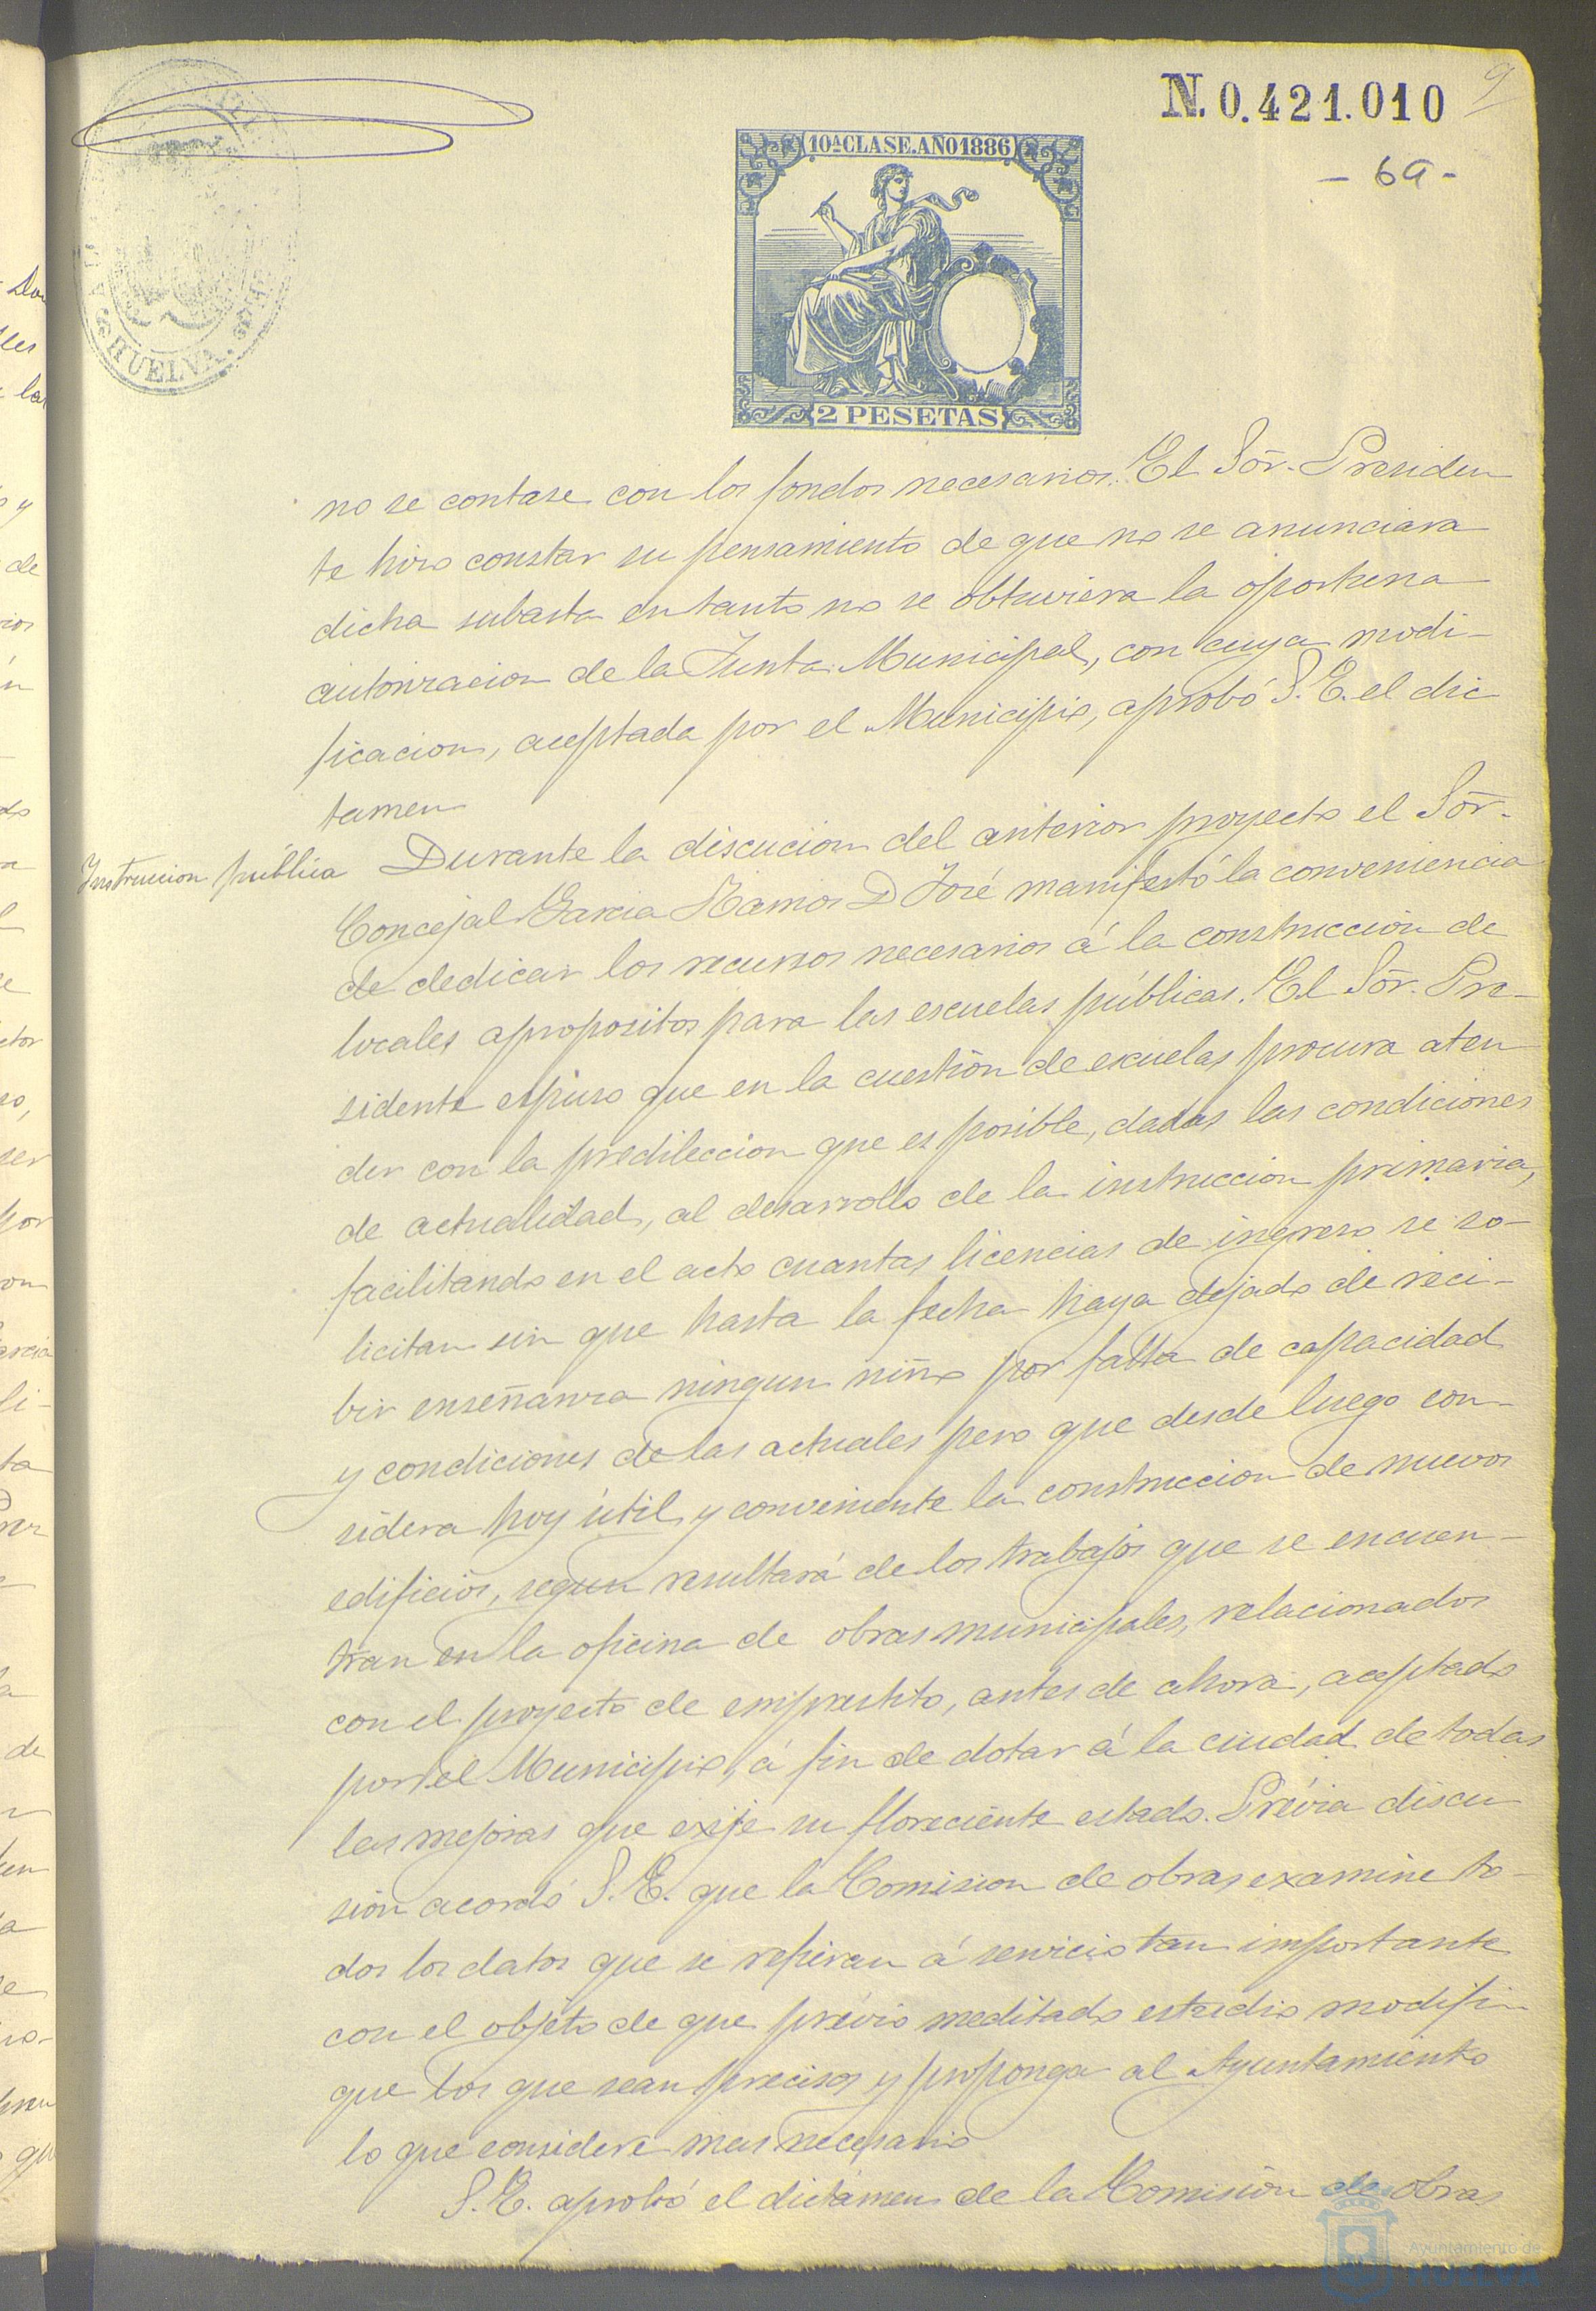 N. 0.421.010
9
- 69 -
10ª CLASE. AÑO 1886
2 PESETAS
HUELVA
no se contase con los fondos necesarios. El Sõr. Presiden
te hizo constar su pensamiento de que no se anunciara
dicha subasta en tanto no se obtuviera la oportuna
autorizacion de la Junta Municipal, con cuya modi-
ficacion, aceptada por el Municipio, aprobó S. E. el dic
tamen
Instruccion pública
Durante la discucion del anterior proyecto el Sõr.
Concejal Garcia Ramos D José manifestó la conveniencia
de dedicar los recursos necesarios á la construcción de
locales apropositos para las escuelas públicas. El Sõr. Pre-
sidente espuso que en la cuestión de escuelas procura aten
der con la predilección que es posible, dadas las condiciones
de actualidad, al desarrollo de la instruccion primaria,
facilitando en el acto cuantas licencias de ingreso se so-
licitan sin que hasta la fecha haya dejado de reci-
bir enseñanza ningun niño por falta de capacidad
y condiciones de las actuales pero que desde luego con-
sidera hoy útil y conveniente la construccion de nuevos
edificios, segun resultará de los trabajos que se encuen-
tran en la oficina de obras municipales, relacionados
con el proyecto de emprestito, antes de ahora, aceptado
por el Municipio, á fin de dotar á la ciudad de todas
las mejoras que exije su floreciente estado. Prévia discu
sión acordó S. E. que la Comision de obras examine to-
dos los datos que se refieran á servicio tan importante
con el objeto de que prévio meditado estudio modifi-
que los que sean precisos y proponga al Ayuntamiento
lo que considere mas necesario
S. E. aprobó el dictámen de la Comisión de obras
Ayuntamiento de
HUELVA